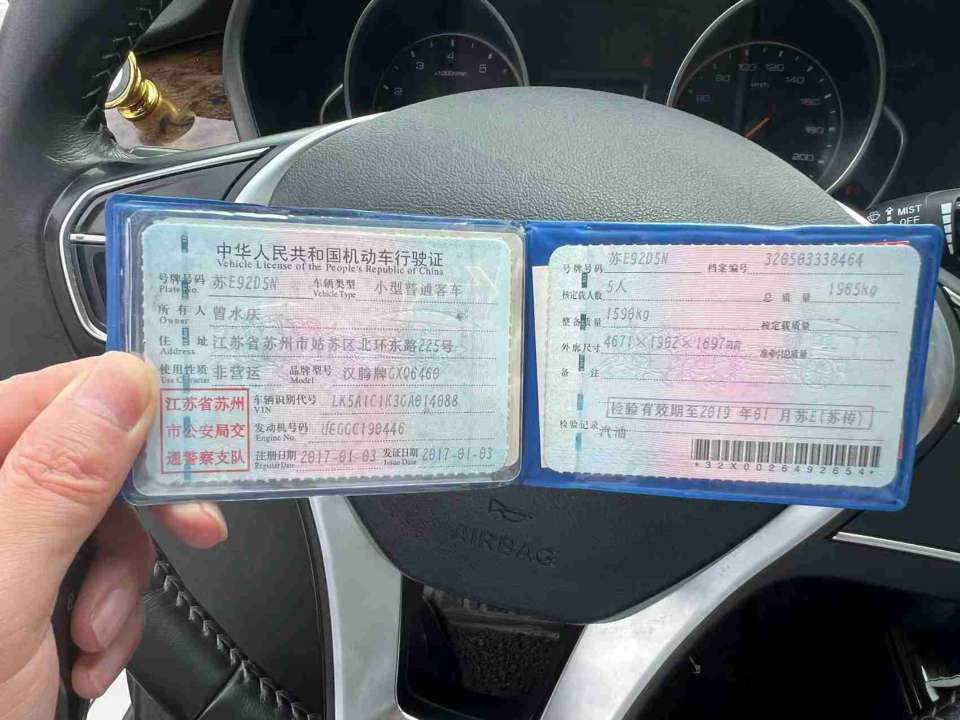 中华人民共和国机动车行驶证
Vehicle License of the People's Republic of China
号牌号码 苏E92D5N 车辆类型 小型普通客车
Plate No. Vehicle Type
所有人 曾水庆
Owner
住址 江苏省苏州市姑苏区北环东路225号
Address
使用性质 非营运 品牌型号 汉腾牌
Use Character Model
江苏省苏州
市公安局交
通警察支队
车辆识别代号
VIN
发动机号码
Engine No.
注册日期 2017-01-03 发证日期 2017-01-03
Register Date Issue Date
号牌号码 苏E92D5N 档案编号 320503338464
核定载人数 5人 总质量 1965kg
整备质量 1590kg 核定载质量
外廓尺寸 准牵引总质量
备注
检验有效期至2019年01月苏E(苏传)
检验记录
汽油
*32X0026492654*
AIRBAG
2 3 4 5
x1000r/min
80 100 120 140 160 180 200
km/h
MIST
OFF